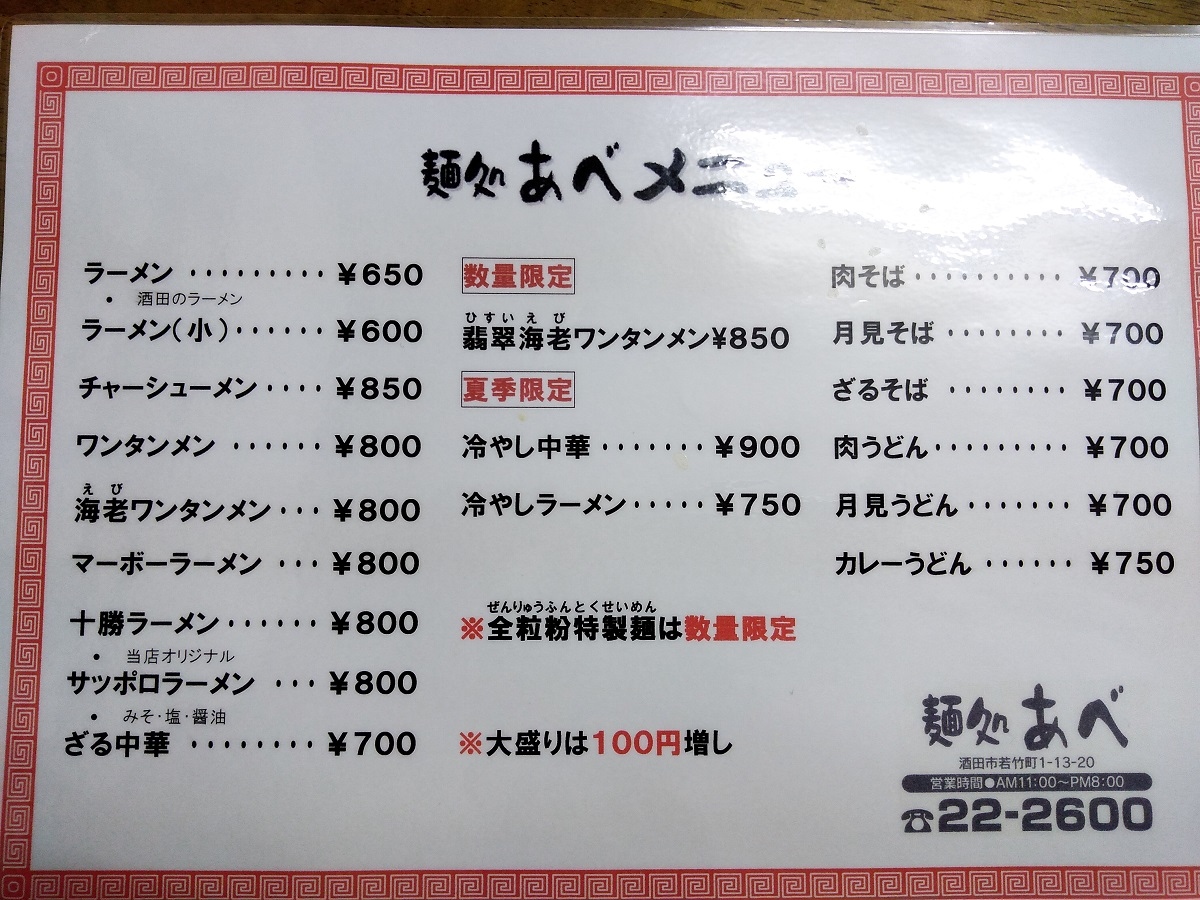 麺処 あべメニュー
ラーメン ・・・・・・・・・ ￥650
・ 酒田のラーメン
ラーメン(小)・・・・・・ ￥600
チャーシューメン ・・・・ ￥850
ワンタンメン ・・・・・・ ￥800
えび
海老ワンタンメン・・・ ￥800
マーボーラーメン ・・・ ￥800
十勝ラーメン・・・・・・ ￥800
・ 当店オリジナル
サッポロラーメン ・・・ ￥800
・ みそ・塩・醤油
ざる中華 ・・・・・・・・ ￥700
数量限定
ひすいえび
翡翠海老ワンタンメン¥850
夏季限定
冷やし中華 ・・・・・・・ ￥900
冷やしラーメン・・・・・ ￥750
ぜんりゅうふんとくせいめん
※全粒粉特製麺は数量限定
※大盛りは100円増し
肉そば・・・・・・・・・・ ￥700
月見そば ・・・・・・・・ ￥700
ざるそば ・・・・・・・・ ￥700
肉うどん・・・・・・・・・ ￥700
月見うどん・・・・・・・ ￥700
カレーうどん ・・・・・・ ￥750
麺処 あべ
酒田市若竹町1-13-20
営業時間●AM11:00〜PM8:00
☎22-2600